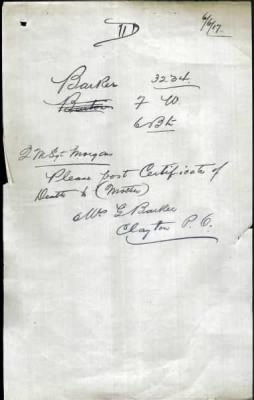 6/6/17
II D
Barker 3234
Burton 7 W
6 Bk
Q M Sgt Morgan
Please post Certificate of
Death to (Mother)
Mrs G Barker
Clayton P. O.